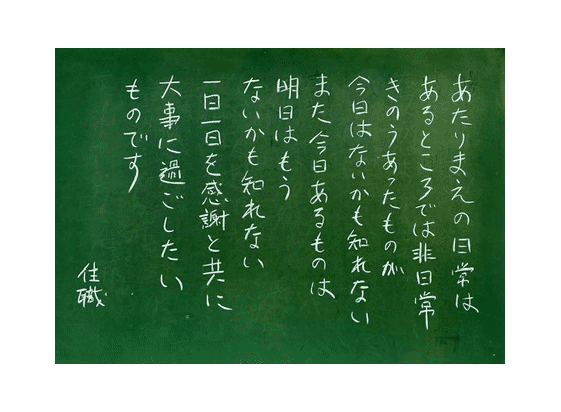 あたりまえの日常は
あるところでは非日常
きのうあったものが
今日はないかも知れない
また今日あるものは
明日はもう
ないかも知れない
一日一日を感謝と共に
大事に過ごしたい
ものです
住職